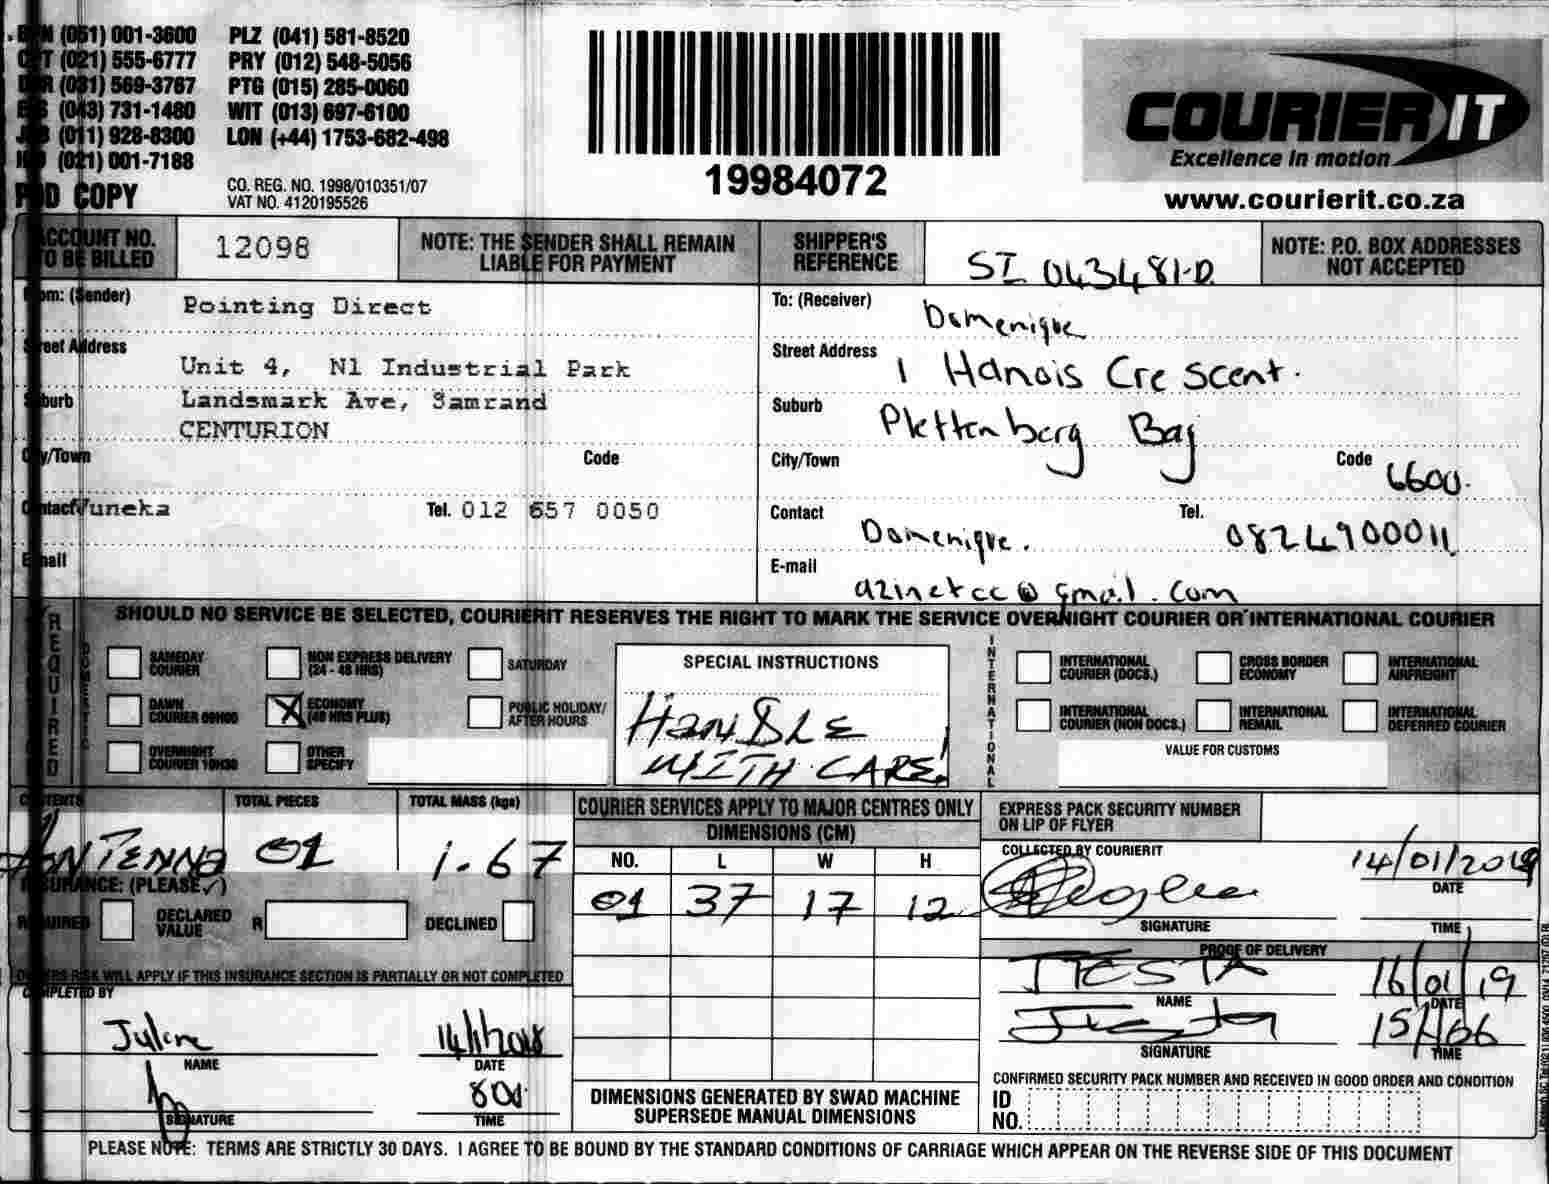 (051) 001-3600 PLZ (041) 581-8520
(021) 555-6777 PRY (012) 548-5056
(031) 569-3767 PTG (015) 285-0060
(043) 731-1480 WIT (013) 697-6100
(011) 928-8300 LON (+44) 1753-682-498
(021) 001-7188
POD COPY
CO. REG. NO. 1998/010351/07
VAT NO. 4120195526
19984072
COURIER IT
Excellence in motion
www.courierit.co.za
ACCOUNT NO. TO BE BILLED 12098
NOTE: THE SENDER SHALL REMAIN LIABLE FOR PAYMENT
SHIPPER'S REFERENCE SI 043481-D
NOTE: P.O. BOX ADDRESSES NOT ACCEPTED
From: (Sender) Pointing Direct
Street Address Unit 4, N1 Industrial Park
Suburb Landsmark Ave, Samrand
CENTURION
City/Town Code
Contact uneka Tel. 012 657 0050
E-mail
To: (Receiver) Domenique
Street Address 1 Hanois Crescent.
Suburb Plettenberg Bay
City/Town Code 6600.
Contact Domenique. Tel. 0824900011
E-mail azinetcc@gmail.com
REQUIRED
DOMESTIC
SHOULD NO SERVICE BE SELECTED, COURIERIT RESERVES THE RIGHT TO MARK THE SERVICE OVERNIGHT COURIER OR INTERNATIONAL COURIER
SAMEDAY COURIER
NON EXPRESS DELIVERY (24 - 48 HRS)
SATURDAY
DAWN COURIER 09H00
X ECONOMY (48 HRS PLUS)
PUBLIC HOLIDAY/ AFTER HOURS
OVERNIGHT COURIER 10H30
OTHER SPECIFY
SPECIAL INSTRUCTIONS
HANDLE
WITH CARE!
INTERNATIONAL
INTERNATIONAL COURIER (DOCS.)
CROSS BORDER ECONOMY
INTERNATIONAL AIRFREIGHT
INTERNATIONAL COURIER (NON DOCS.)
INTERNATIONAL REMAIL
INTERNATIONAL DEFERRED COURIER
VALUE FOR CUSTOMS
CONTENTS TOTAL PIECES TOTAL MASS (kgs)
ANTENNA 01 1.67
INSURANCE: (PLEASE ✓)
REQUIRED DECLARED VALUE R DECLINED
OWNERS RISK WILL APPLY IF THIS INSURANCE SECTION IS PARTIALLY OR NOT COMPLETED
COMPLETED BY
14/1/2018
NAME DATE
801
SIGNATURE TIME
COURIER SERVICES APPLY TO MAJOR CENTRES ONLY
DIMENSIONS (CM)
NO. L W H
01 37 17 12
DIMENSIONS GENERATED BY SWAD MACHINE
SUPERSEDE MANUAL DIMENSIONS
EXPRESS PACK SECURITY NUMBER ON LIP OF FLYER
COLLECTED BY COURIERIT
14/01/2019
DATE
SIGNATURE TIME
PROOF OF DELIVERY
JTESTA 16/01/19
NAME DATE
15/06
SIGNATURE TIME
CONFIRMED SECURITY PACK NUMBER AND RECEIVED IN GOOD ORDER AND CONDITION
ID NO.
PLEASE NOTE: TERMS ARE STRICTLY 30 DAYS. I AGREE TO BE BOUND BY THE STANDARD CONDITIONS OF CARRIAGE WHICH APPEAR ON THE REVERSE SIDE OF THIS DOCUMENT